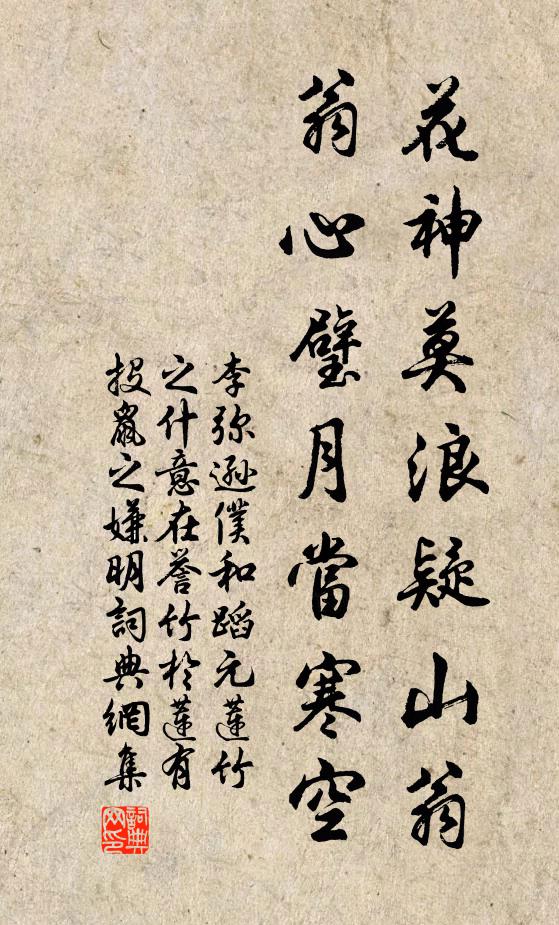 花神莫浪疑山翁
翁心璧月當寒空
李弥遜僕和蹈元蓮竹
之什意在譽竹於蓮有
投鼠之嫌明詞典網集
詞典
网印